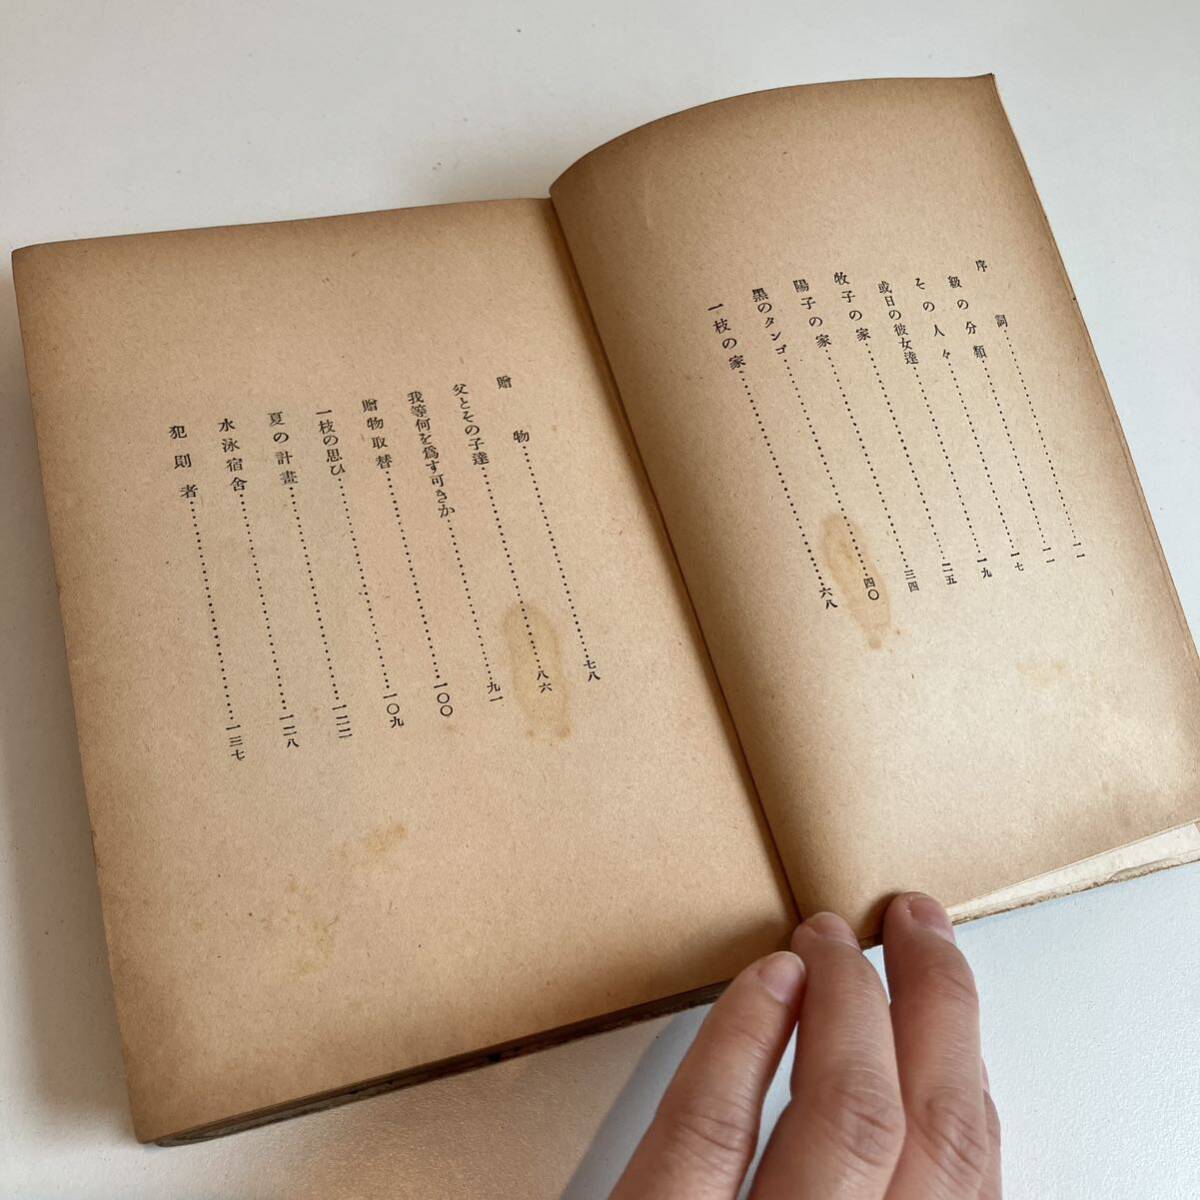 序詞…………一
級の分類…………一
その人々…………一七
或日の彼女達…………一九
牧子の家…………二五
陽子の家…………三四
黒のタンゴ…………四〇
一枝の家…………六八
贈物…………七八
父とその子達…………八六
我等何を爲す可きか…………九一
贈物取替…………一〇〇
一枝の思ひ…………一〇九
夏の計畫…………一二二
水泳宿舍…………一二八
犯則者…………一三七